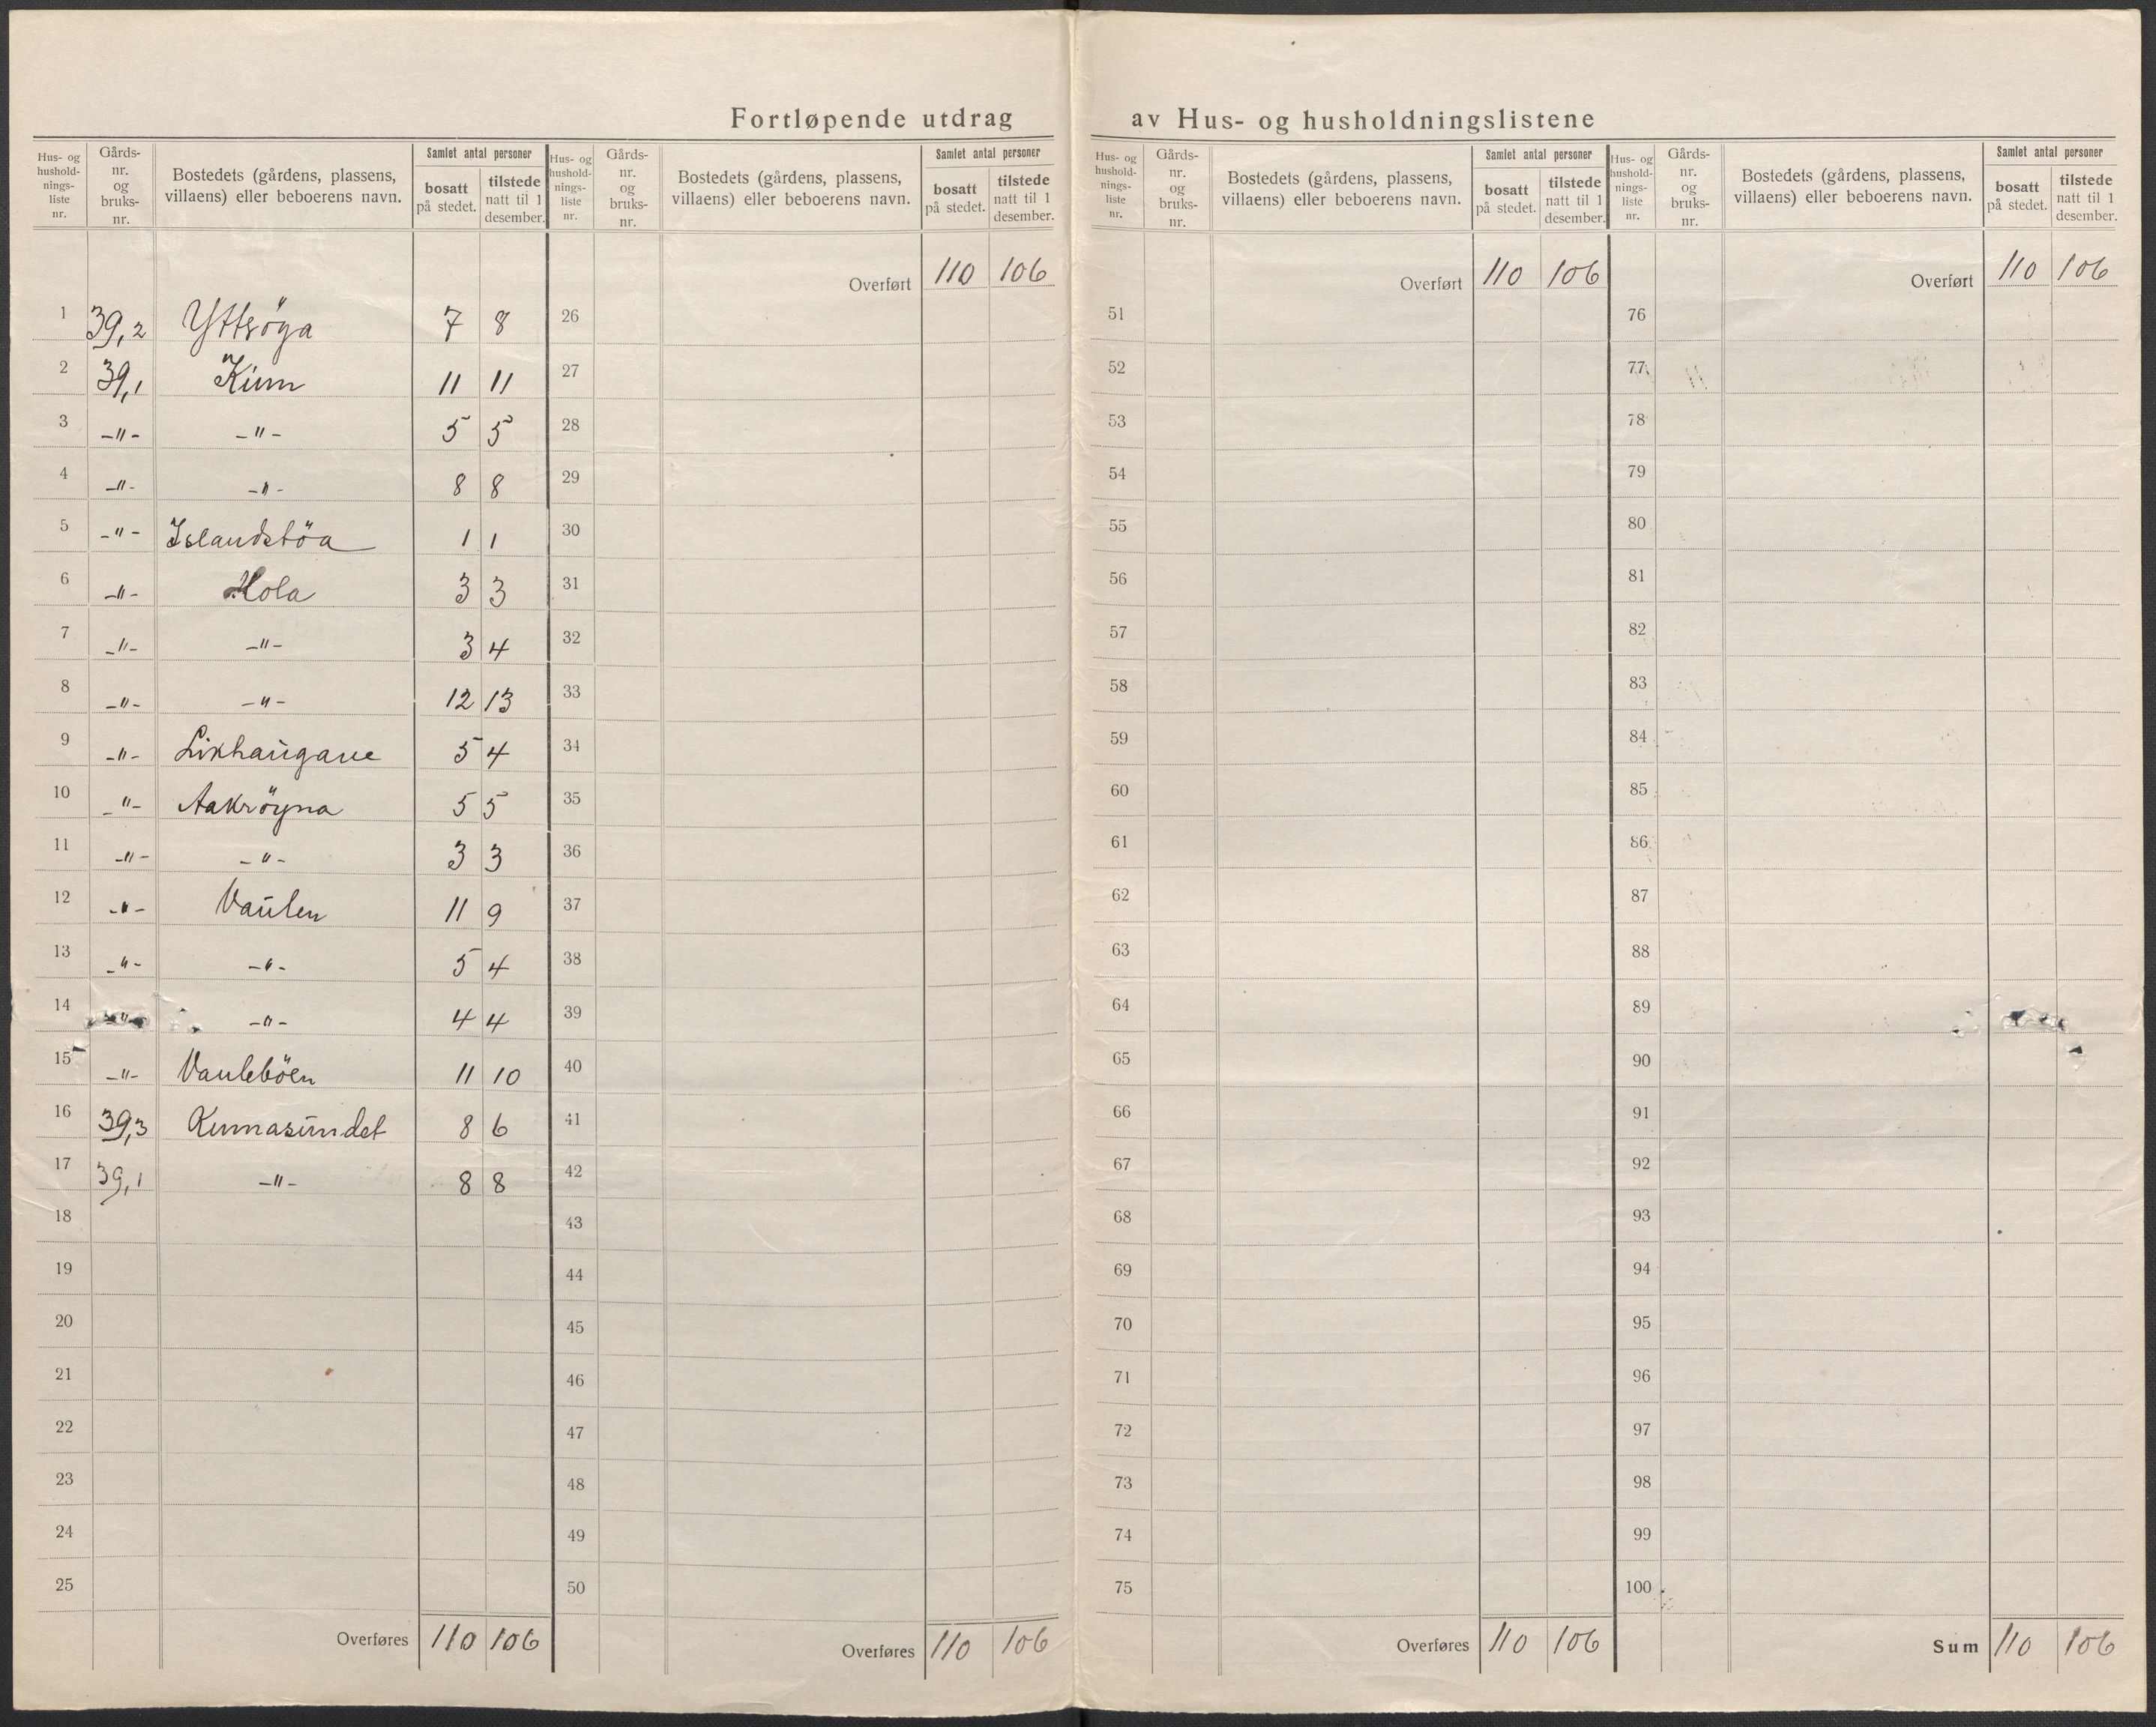 Fortløpende utdrag av Hus- og husholdningslistene
Hus- og hushold-nings-liste nr. Gårds-nr. og bruks-nr. Bostedets (gårdens, plassens, villaens) eller beboerens navn. Samlet antal personer bosatt på stedet. tilstede natt til 1 desember.
1 39,2 Yttrøya 7 8
2 39,1 Kinn 11 11
3 -"- -"- 5 5
4 -"- -"- 8 8
5 -"- Islandstöa 1 1
6 -"- Hola 3 3
7 -"- -"- 3 4
8 -"- -"- 12 13
9 -"- Likhaugane 5 4
10 -"- Aakröyna 5 5
11 -"- -"- 3 3
12 -"- Vaulen 11 9
13 -"- -"- 5 4
14 -"- -"- 4 4
15 -"- Vauleböen 11 10
16 39,3 Kinnasundet 8 6
17 39,1 -"- 8 8
18
19
20
21
22
23
24
25
Overføres 110 106
Hus- og hushold-nings-liste nr. Gårds-nr. og bruks-nr. Bostedets (gårdens, plassens, villaens) eller beboerens navn. Samlet antal personer bosatt på stedet. tilstede natt til 1 desember.
Overført 110 106
26
27
28
29
30
31
32
33
34
35
36
37
38
39
40
41
42
43
44
45
46
47
48
49
50
Overføres 110 106
Hus- og hushold-nings-liste nr. Gårds-nr. og bruks-nr. Bostedets (gårdens, plassens, villaens) eller beboerens navn. Samlet antal personer bosatt på stedet. tilstede natt til 1 desember.
Overført 110 106
51
52
53
54
55
56
57
58
59
60
61
62
63
64
65
66
67
68
69
70
71
72
73
74
75
Overføres 110 106
Hus- og hushold-nings-liste nr. Gårds-nr. og bruks-nr. Bostedets (gårdens, plassens, villaens) eller beboerens navn. Samlet antal personer bosatt på stedet. tilstede natt til 1 desember.
Overført 110 106
76
77
78
79
80
81
82
83
84
85
86
87
88
89
90
91
92
93
94
95
96
97
98
99
100
Sum 110 106